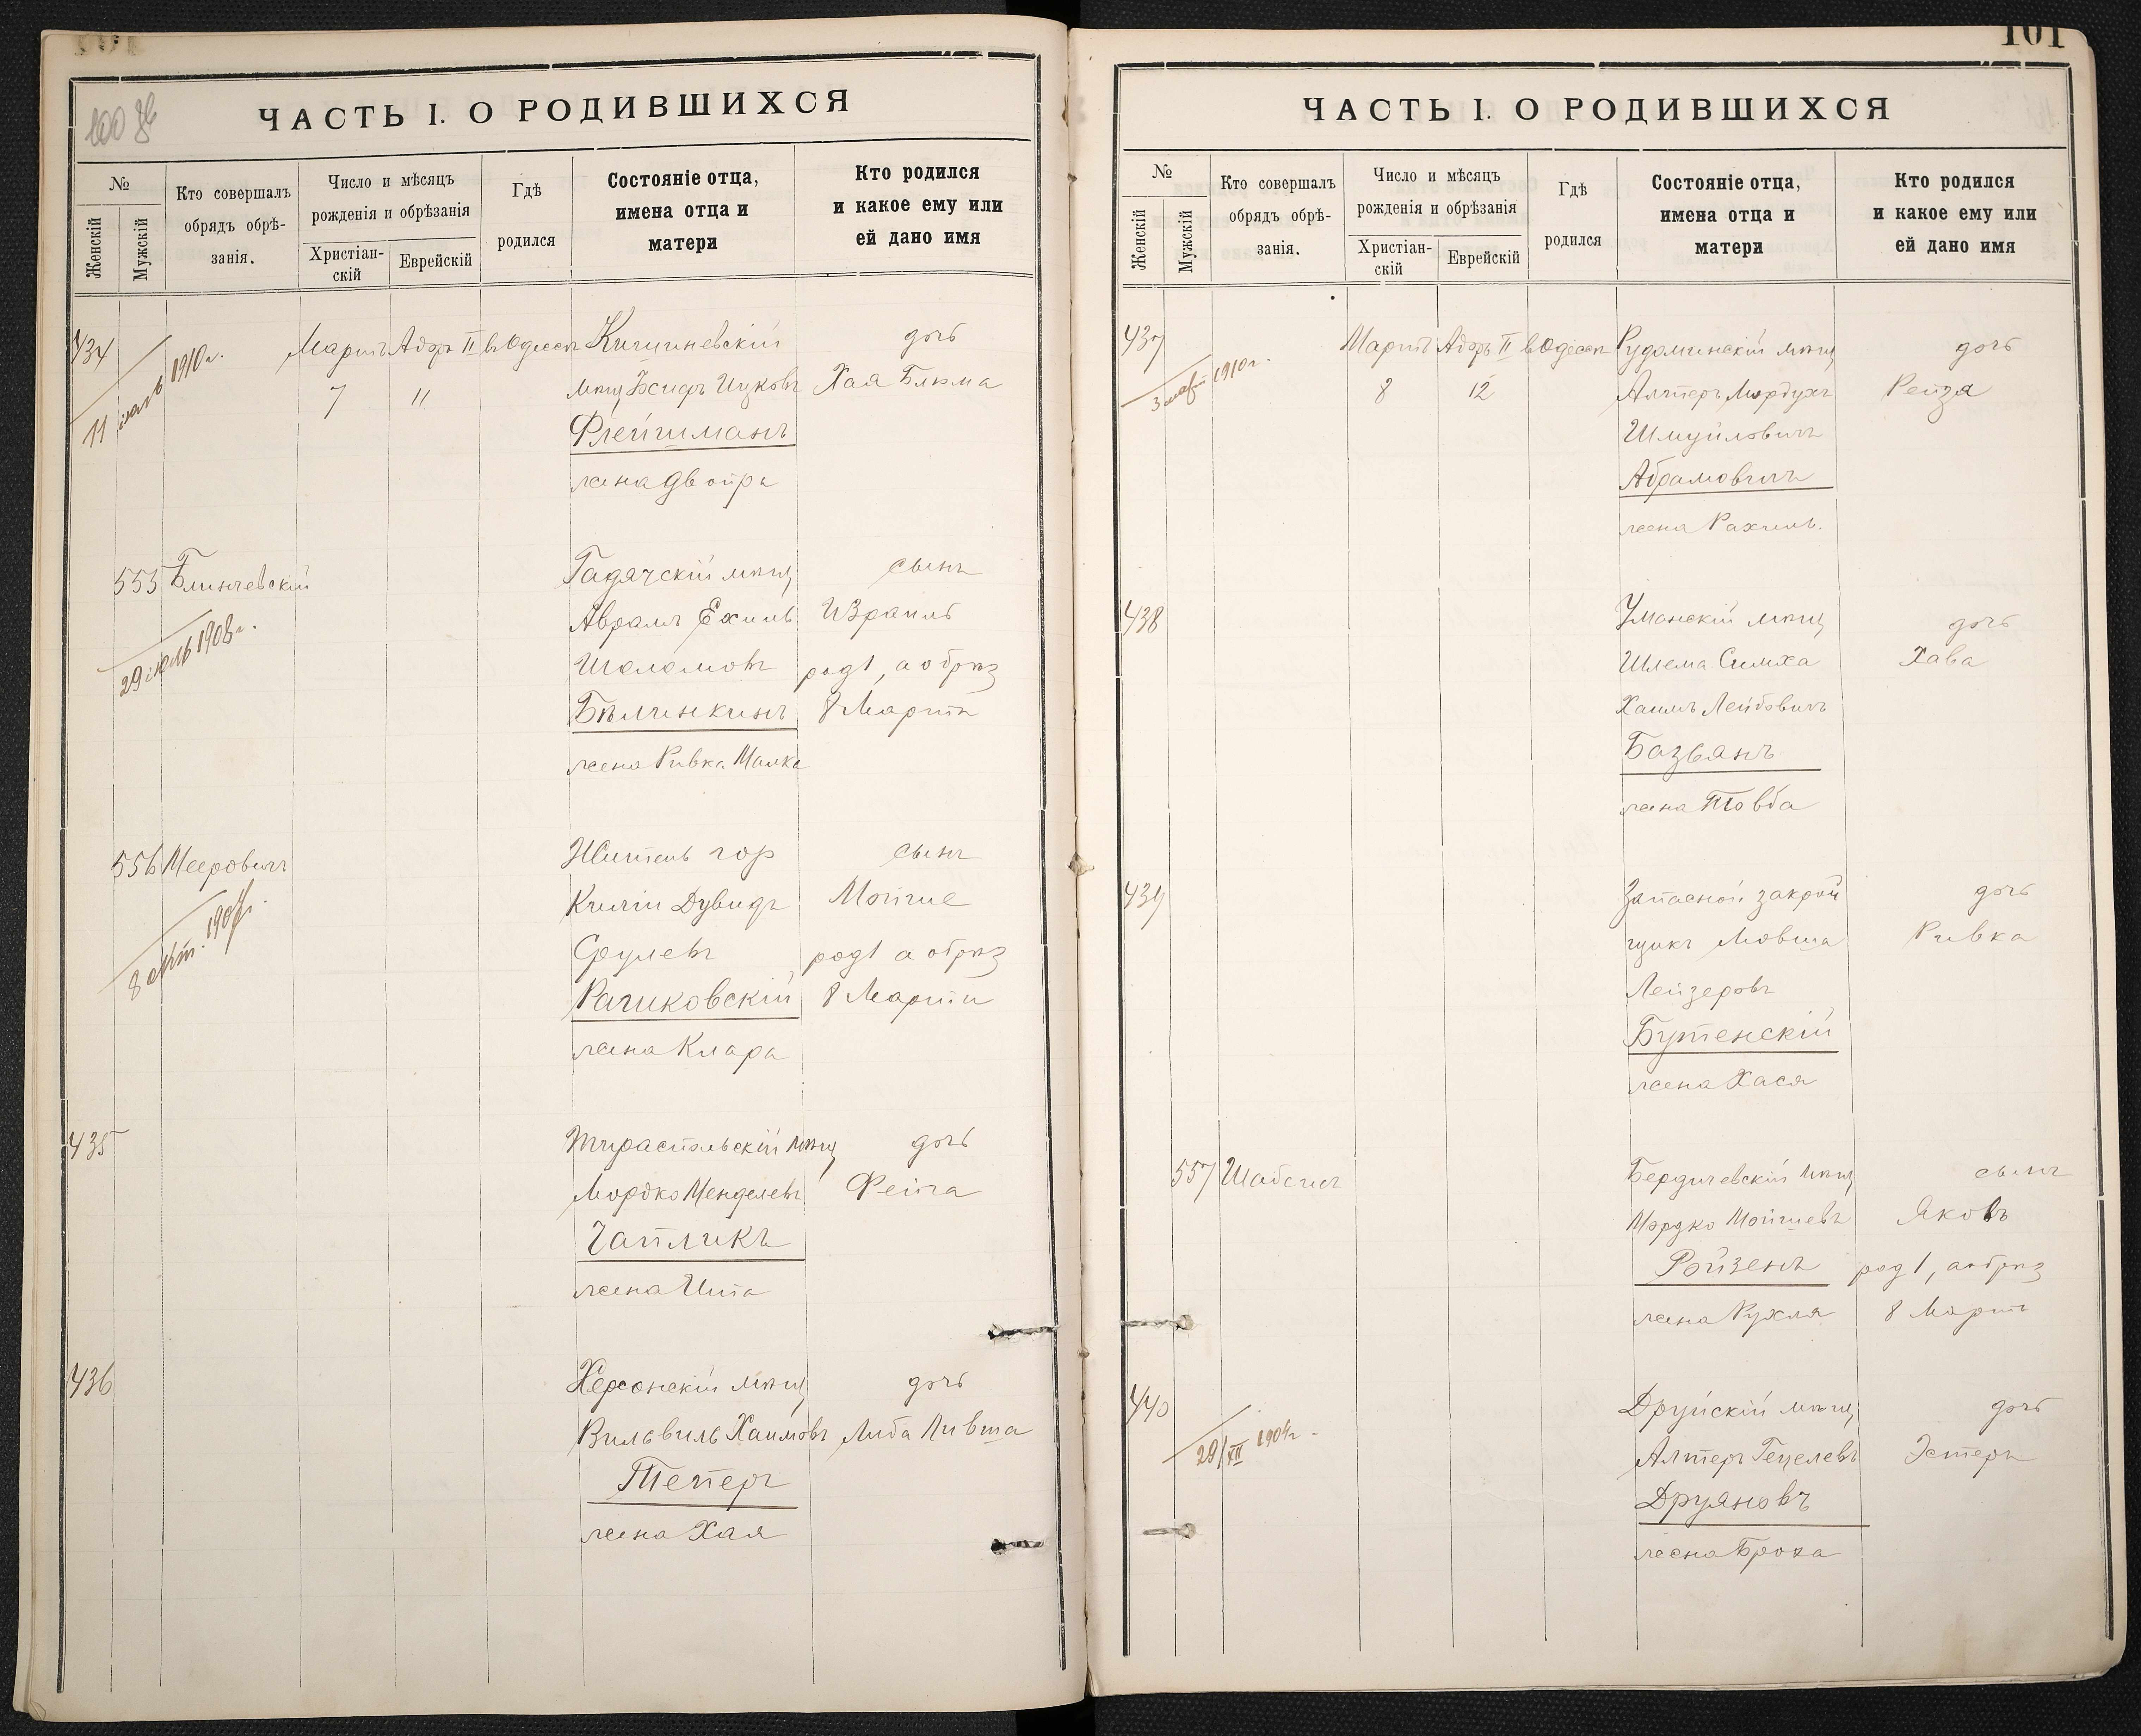 100 об
ЧАСТЬ I. О РОДИВШИХСЯ
№
Женскій
Мужскій
Кто совершалъ
обрядъ обрѣ-
занія.
Число и мѣсяцъ
рожденія и обрѣзанія
Христіан-
скій
Еврейскій
Гдѣ
родился
Состояніе отца,
имена отца и
матери
Кто родился
и какое ему или
ей дано имя
434
11 1910 г.
Мартъ Адаръ II въ Одессѣ Кишиневскій дочь
7 11 мѣщ Іосифъ Ицковъ Хая Блюма
Флейшманъ
жена Двойра
555 Блинчевскій Гадячскій мѣщ сынъ
29 іюль 1908 г.
Аврамъ Ехиль Израиль
Шоломовъ род 1, а обрѣз
Бѣлинкинъ 8 Марта
жена Ривка Малка
556 Мееровичъ Житель гор сынъ
8
Киліи Дувидъ Мойше
Срулевъ род 1 а обрѣз
Рашковскій 8 Марта
жена Клара
435 Тираспольскій мѣщ дочь
Мордко Менделевъ Фейга
Чапликъ
жена Ита
436 Херсонскій мѣщ дочь
Вильвиль Хаимовъ Либа Лившa
Теперъ
жена Хая
101
ЧАСТЬ I. О РОДИВШИХСЯ
№
Женскій
Мужскій
Кто совершалъ
обрядъ обрѣ-
занія.
Число и мѣсяцъ
рожденія и обрѣзанія
Христіан-
скій
Еврейскій
Гдѣ
родился
Состояніе отца,
имена отца и
матери
Кто родился
и какое ему или
ей дано имя
437 Мартъ Адаръ II въ Одессѣ Рудоминскій мѣщ дочь
3 1910 г.
8 12 Алтеръ Мордухъ Рейза
Шмуйловичъ
Абрамовичъ
жена Рахиль.
438 Уманскій мѣщ дочь
Шлема Симха Хава
Хаимъ Лейбовичъ
Базьянъ
жена Товба
439 Запасной закрой дочь
щикъ Мовша Ривка
Лейзеровъ
Бутенскій
жена Хася
557 Шабсисъ Бердичевскій мѣщ сынъ
Мордко Мойшевъ Яковъ
Ройзенъ род 1, а обрѣз
жена Рухля 8 Марта
440 Друйскій мѣщ дочь
29/XII 1904 г.
Алтеръ Гецелевъ Эстеръ
Друяновъ
жена Броха